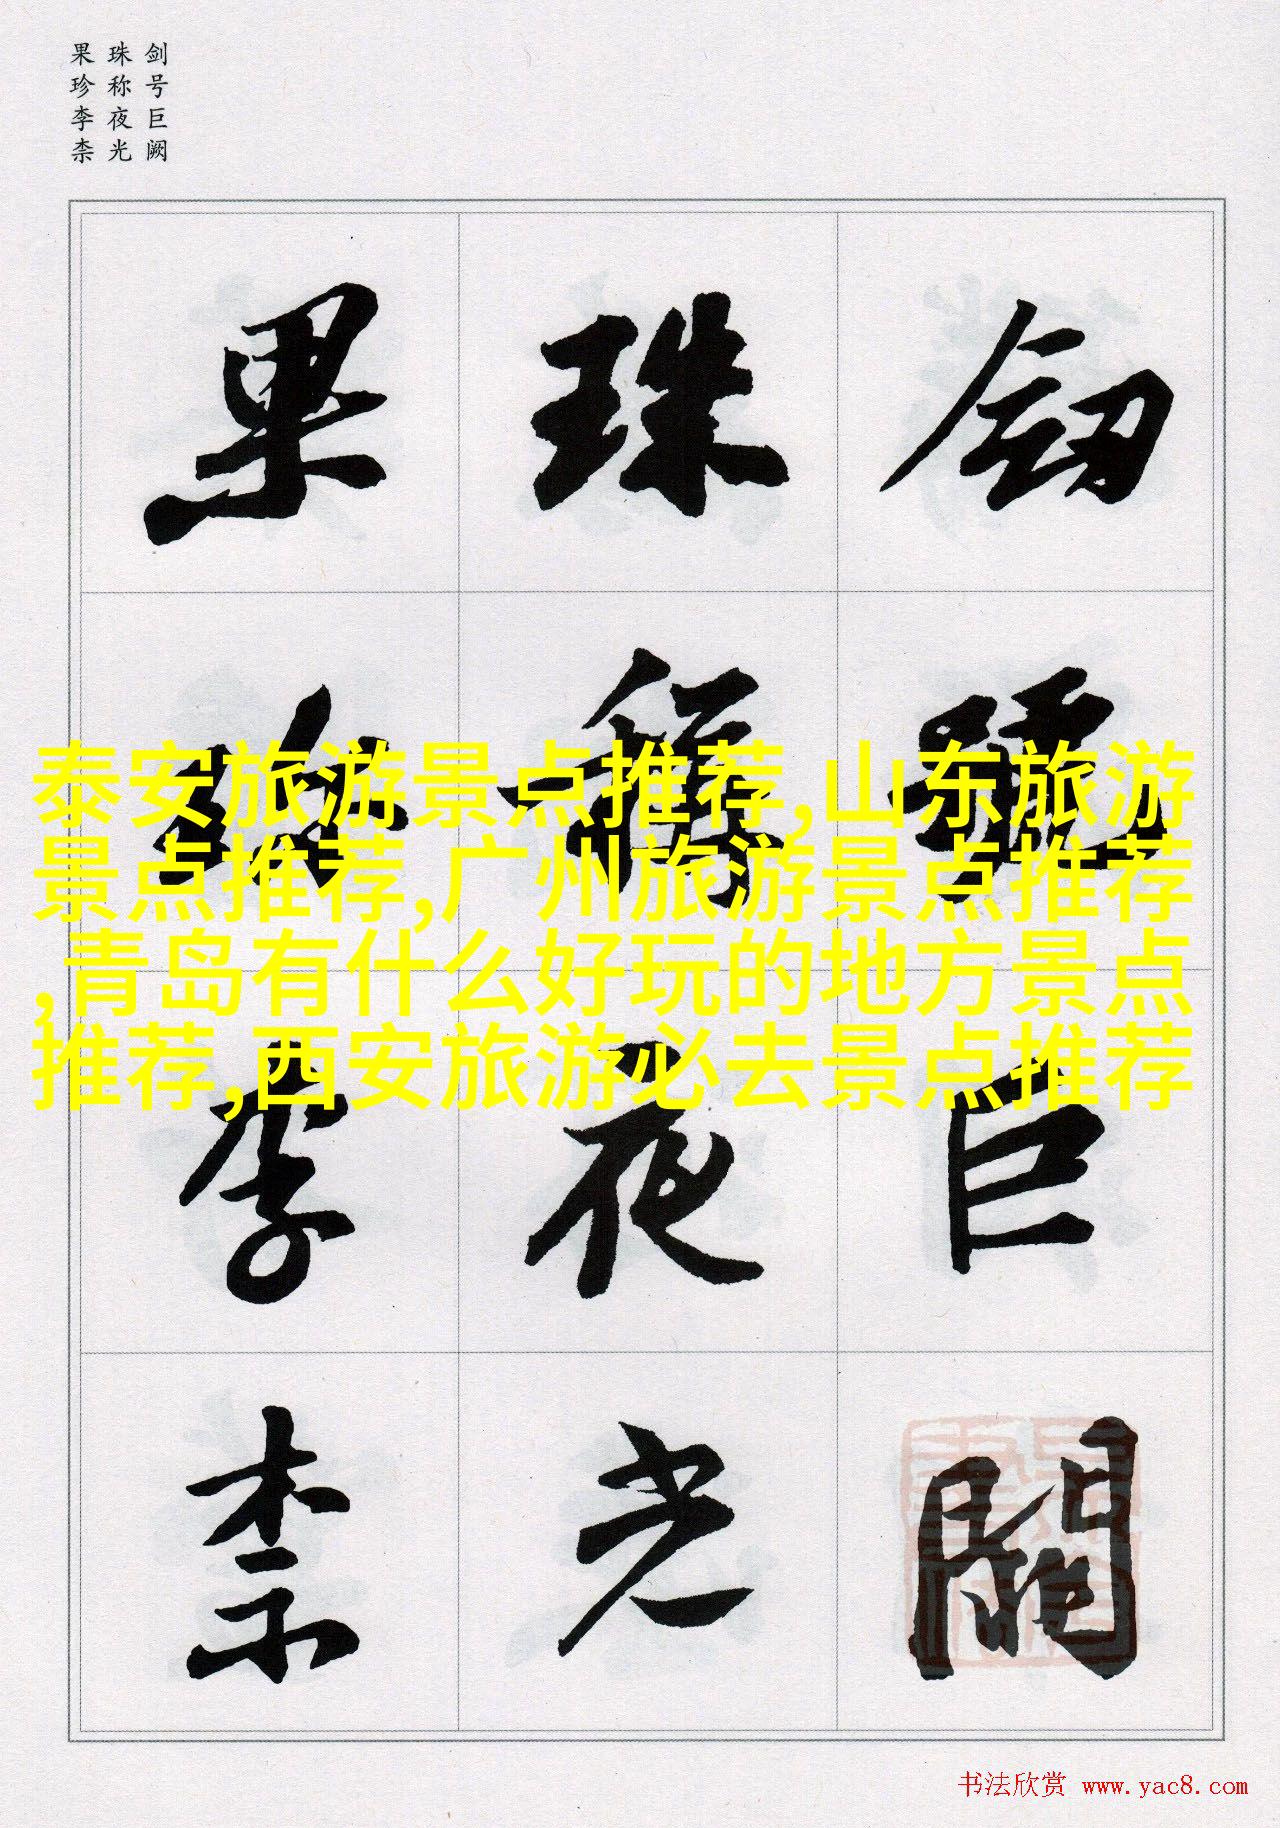 剑号巨阙
珠称夜光
果珍李柰
劎號巨闕
珠稱夜光
果珍李柰
泰安旅游景点推荐,山东旅游
景点推荐,广州旅游景点推荐
,青岛有什么好玩的地方景点
推荐,西安旅游必去景点推荐
书法欣赏 www.yac8.com